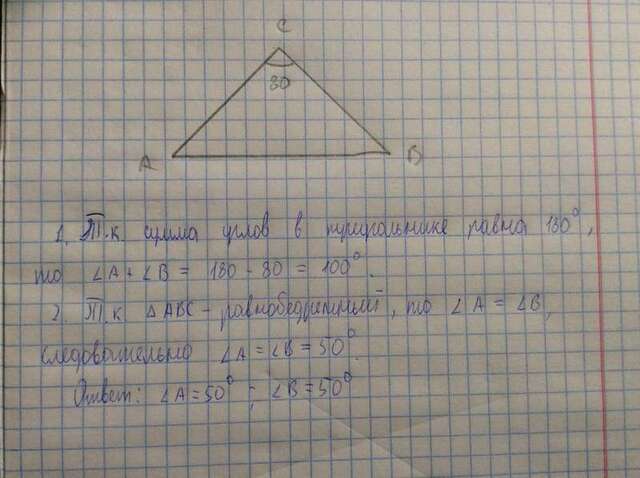 C
80
A B
1. Т.к. сумма углов в треугольнике равна 180°,
то ∠A + ∠B = 180 - 80 = 100°.
2. Т.к. △ABC - равнобедренный, то ∠A = ∠B,
следовательно ∠A = ∠B = 50°.
Ответ: ∠A = 50° ; ∠B = 50°